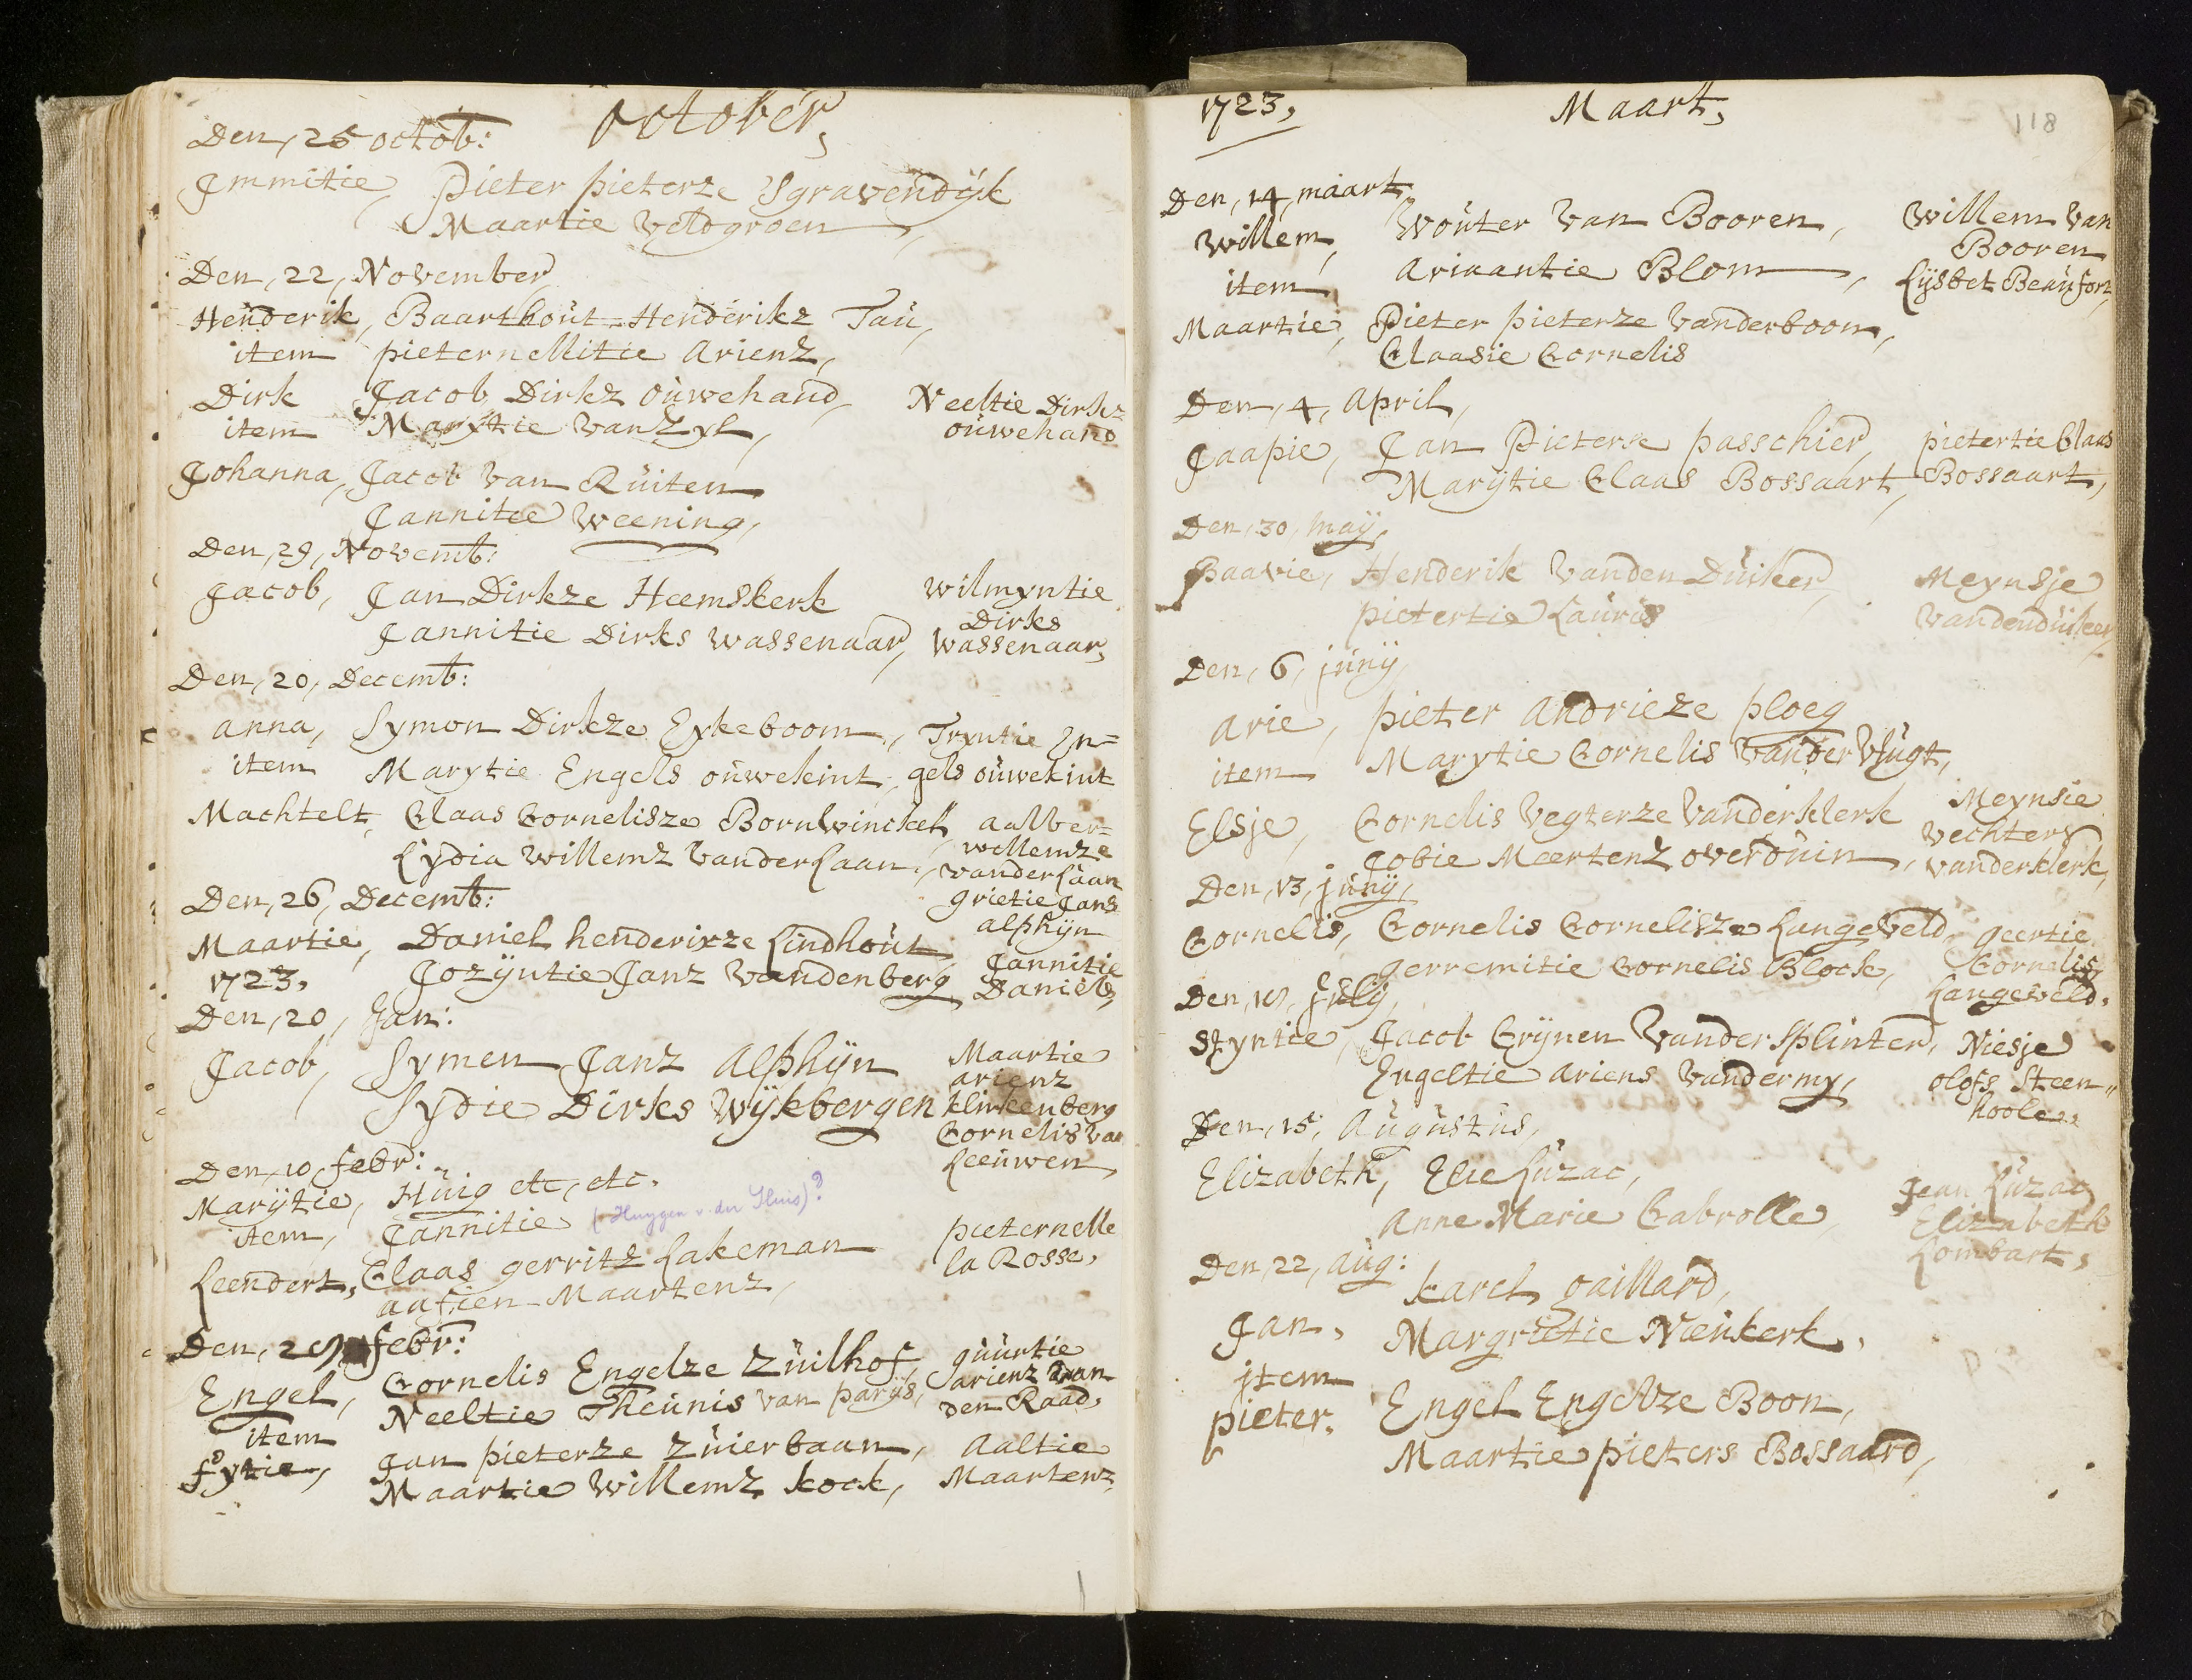 october,
Den, 25 octob:
Jmmitie, Pieter pieterze Sgravendijk
Maartie Veldgroen,
Den, 22, November,
Henderik, Baarthout Henderikz Tau,
item pieternellitie Arienz,
Dirk Jacob Dirkz ouwehand, Neeltie Dirkz
item Marytie Van Zyl, ouwehand
Johanna, Jacob Van Ruiten
Jannitie weening,
Den, 29, Novemb:
Jacob, Jan Dirkze Heemskerk wilmyntie
Dirks
Jannitie Dirks wassenaar, wassenaar,
Den, 20, Decemb:
anna, Symon Dirkze Eykeboom, Tryntie En=
item Marytie Engels ouwekint, gels ouwekint
Machtelt, Claas Cornelisze Bornwinckel, aalber=
willemze
Lydia willemz Vanderlaan, vanderlaan
Den, 26, Decemb: grietie Jans
alphyn
Maartie, Daniel henderixze Lindhout, Jannitie
1723, Jozyntie Janz Vandenberg Daniels,
Den, 20, Jan:
Jacob, Symen Janz Alphyn Maartie
arienz
Sydie Dirks Wykbergen klinkenberg
Cornelis van
Leeuwen,
Den, 10, febr:
Marytie, Huig etc, etc.
item, Jannitie (Huygen v. der Sluis)? pieternelle
Leendert, Claas gerritz Lakeman la Rosse,
aafien Maartenz,
Den, febr:
Engel, Cornelis Engelze Zuilhof, guurtie
arienz van
Neeltie Theunis van parys, den Raad,
item
fytie, Jan pieterze Zuierbaan, Aaltie
Maartie Willemz kock, Maartenz,
1723, Maart,
118
Den, 14, maart,
Willem, Wouter Van Booren, Willem Van
Booren
item Ariaantie Blom, Lysbet Beaufort,
Maartie, Pieter pieterze Vanderboom,
Claasie Cornelis
Den, 4, April,
Jaapie, Jan Pieterse passchier, pietertie Claas
Marijtie Claas Bossaart, Bossaart,
Den, 30, may,
Paavie, Henderik Vanden Duiker, Meynsje
pietertie Lauris vandenduiker,
Den, 6, junij,
Arie, pieter Andrieze ploeg
item Marytie Cornelis Vander Vlugt,
Elsje, Cornelis Vegterze Vanderklerk Meynsie
vechters
Jobie Meertenz overduin, vanderklerk,
Den, 13, junij,
Cornelis, Cornelis Cornelisze Langeveld, geertie
Cornelis
gerremitie Cornelis Block, Langeveld,
Den, July,
Styntie, Jacob Crijnen Vander Splinter, Niesje
Engeltie Ariens Vandermy, olofs Steen"
hoole,
Den, 15, Augustus,
Elizabeth, Elie Luzac, Jean Luzac
Anne Marie Cabrolle, Elizabeth
Lombart,
Den, 22, aug:
karel gaillard,
Jan, Margrietie Nieukerk,
item
pieter, Engel Engelze Boon,
Maartie pieters Bossaard,